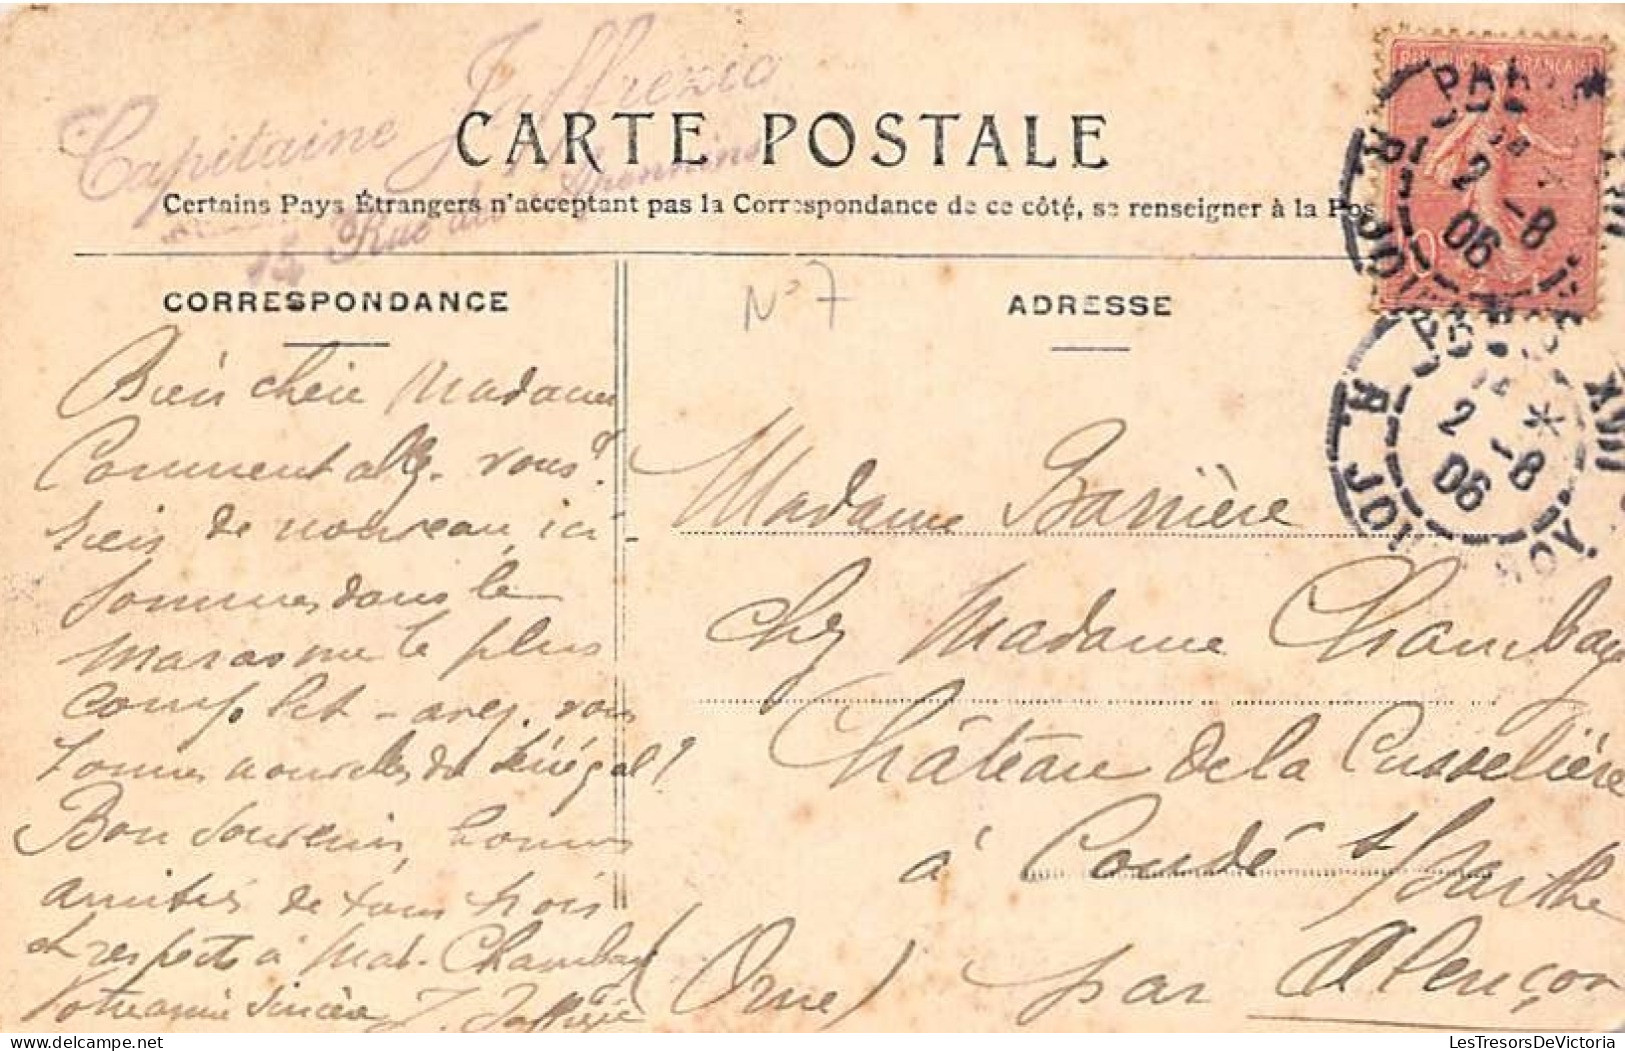 Capitaine Jaffrezic
15 Rue des
CARTE POSTALE
Certains Pays Étrangers n'acceptant pas la Correspondance de ce côté, se renseigner à la Pos
CORRESPONDANCE
N° 7
ADRESSE
Bien chère Madame
Comment allez-vous?
rien de nouveau ici-
sommes dans le
marasme le plus
complet - avez-vous
bonnes nouvelles du Sénégal?
Bon souvenir, bonnes
amitiés de tous trois
et respects à Mad. Chambay
Votre amie sincère J. Jaffrezic
Madame Barrière
chez Madame Chambay
Château de la Cusselière
à Condé s/Sarthe
(Orne) par Alençon
PARIS XVIII
R. JOUY
2 -8
06
PARIS XVIII
R. JOUY
2 -8
06
LesTresorsDeVictoria.com